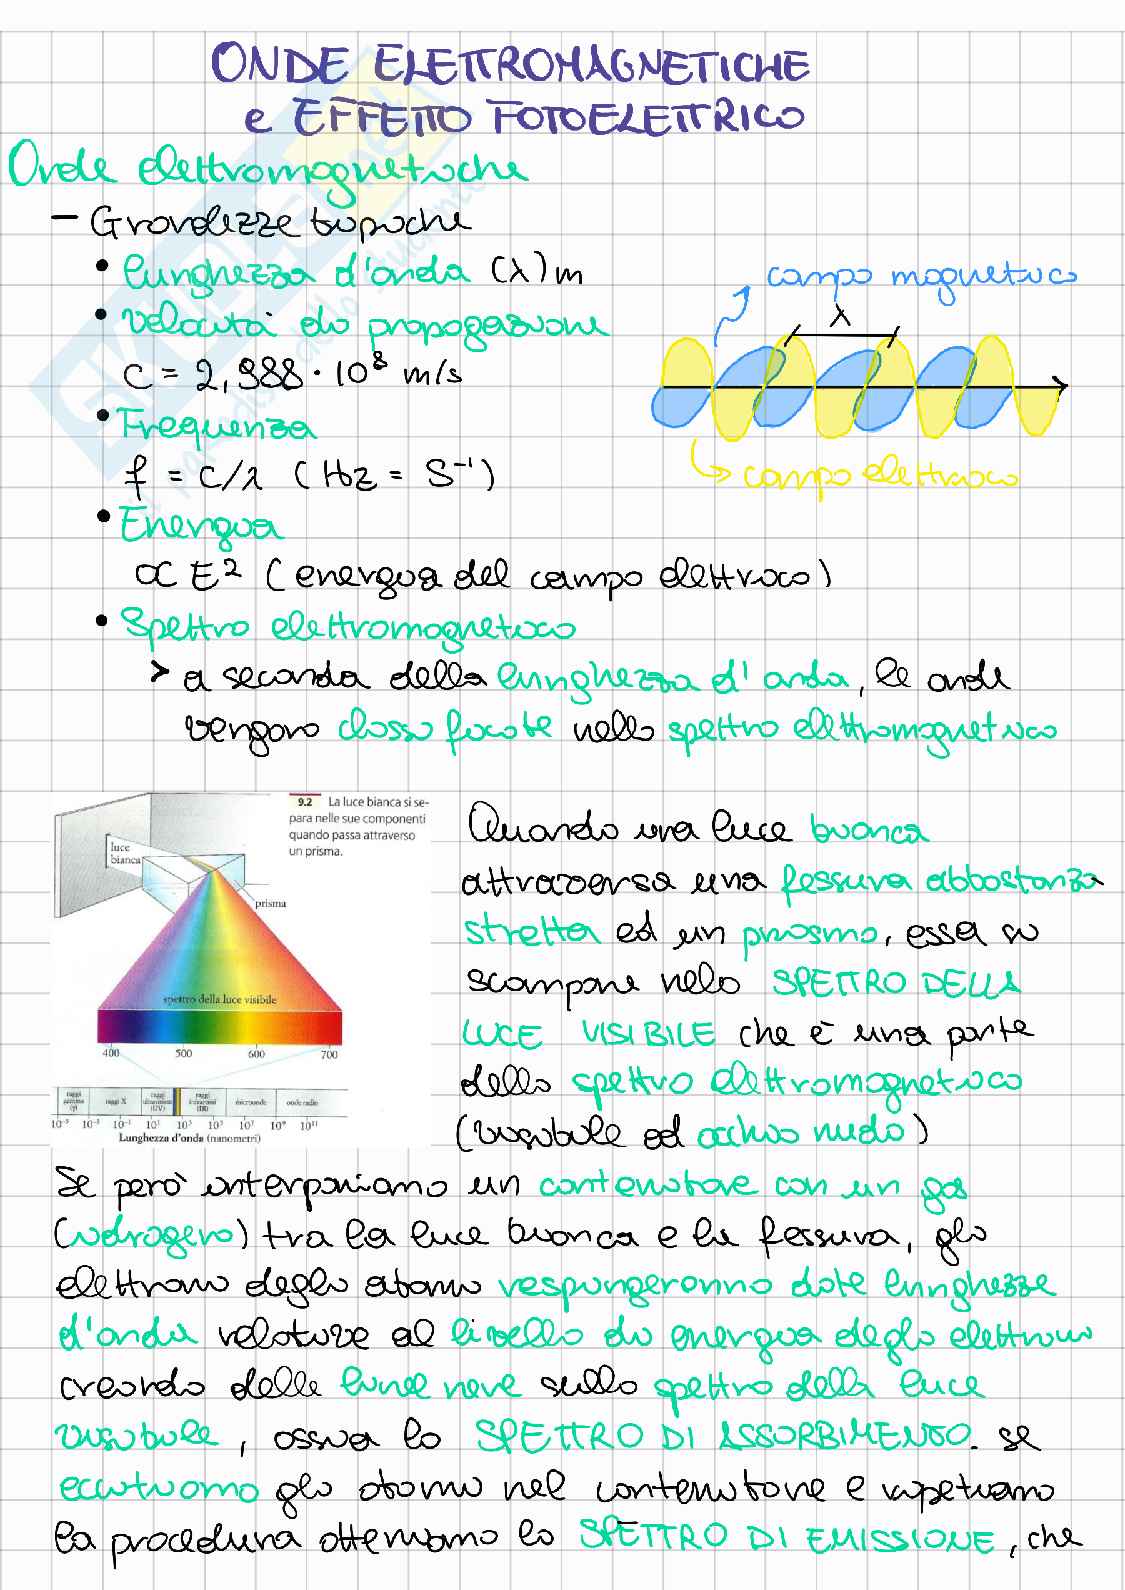 ONDE ELETTROMAGNETICHE
e EFFETTO FOTOELETTRICO
Onde elettromagnetiche
- Grandezze tipiche
• lunghezza d'onda (λ) m
• velocità di propagazione
c = 2,988 · 10⁸ m/s
• Frequenza
f = c/λ (Hz = S⁻¹)
• Energia
∝ E² (energia del campo elettrico)
campo magnetico
λ
campo elettrico
• Spettro elettromagnetico
> a seconda della lunghezza d'onda, le onde
vengono classificate nello spettro elettromagnetico
9.2 La luce bianca si se-
para nelle sue componenti
quando passa attraverso
un prisma.
luce
bianca
prisma
spettro della luce visibile
400 500 600 700
raggi gamma (γ) raggi X raggi ultravioletti (UV) raggi infrarossi (IR) microonde onde radio
10⁻⁵ 10⁻³ 10⁻¹ 10¹ 10³ 10⁵ 10⁷ 10⁹ 10¹¹
Lunghezza d'onda (nanometri)
Quando una luce bianca
attraversa una fessura abbastanza
stretta ed un prisma, essa si
scompone nello SPETTRO DELLA
LUCE VISIBILE che è una parte
dello spettro elettromagnetico
(visibile ad occhio nudo)
Se però interponiamo un contenitore con un gas
(idrogeno) tra la luce bianca e la fessura, gli
elettroni degli atomi respingeranno date lunghezze
d'onda relative al livello di energia degli elettroni
creando delle linee nere sullo spettro della luce
visibile, ossia lo SPETTRO DI ASSORBIMENTO. se
eccitiamo gli atomi nel contenitore e ripetiamo
la procedura otteniamo lo SPETTRO DI EMISSIONE, che